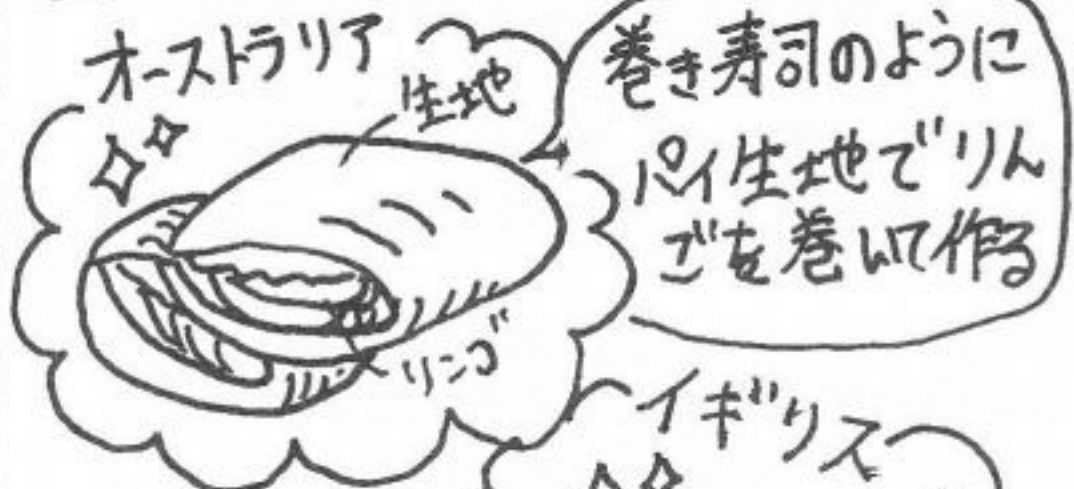 オーストラリア
生地
リンゴ
巻き寿司のように
パイ生地でりん
ごを巻いて作る
イギリス